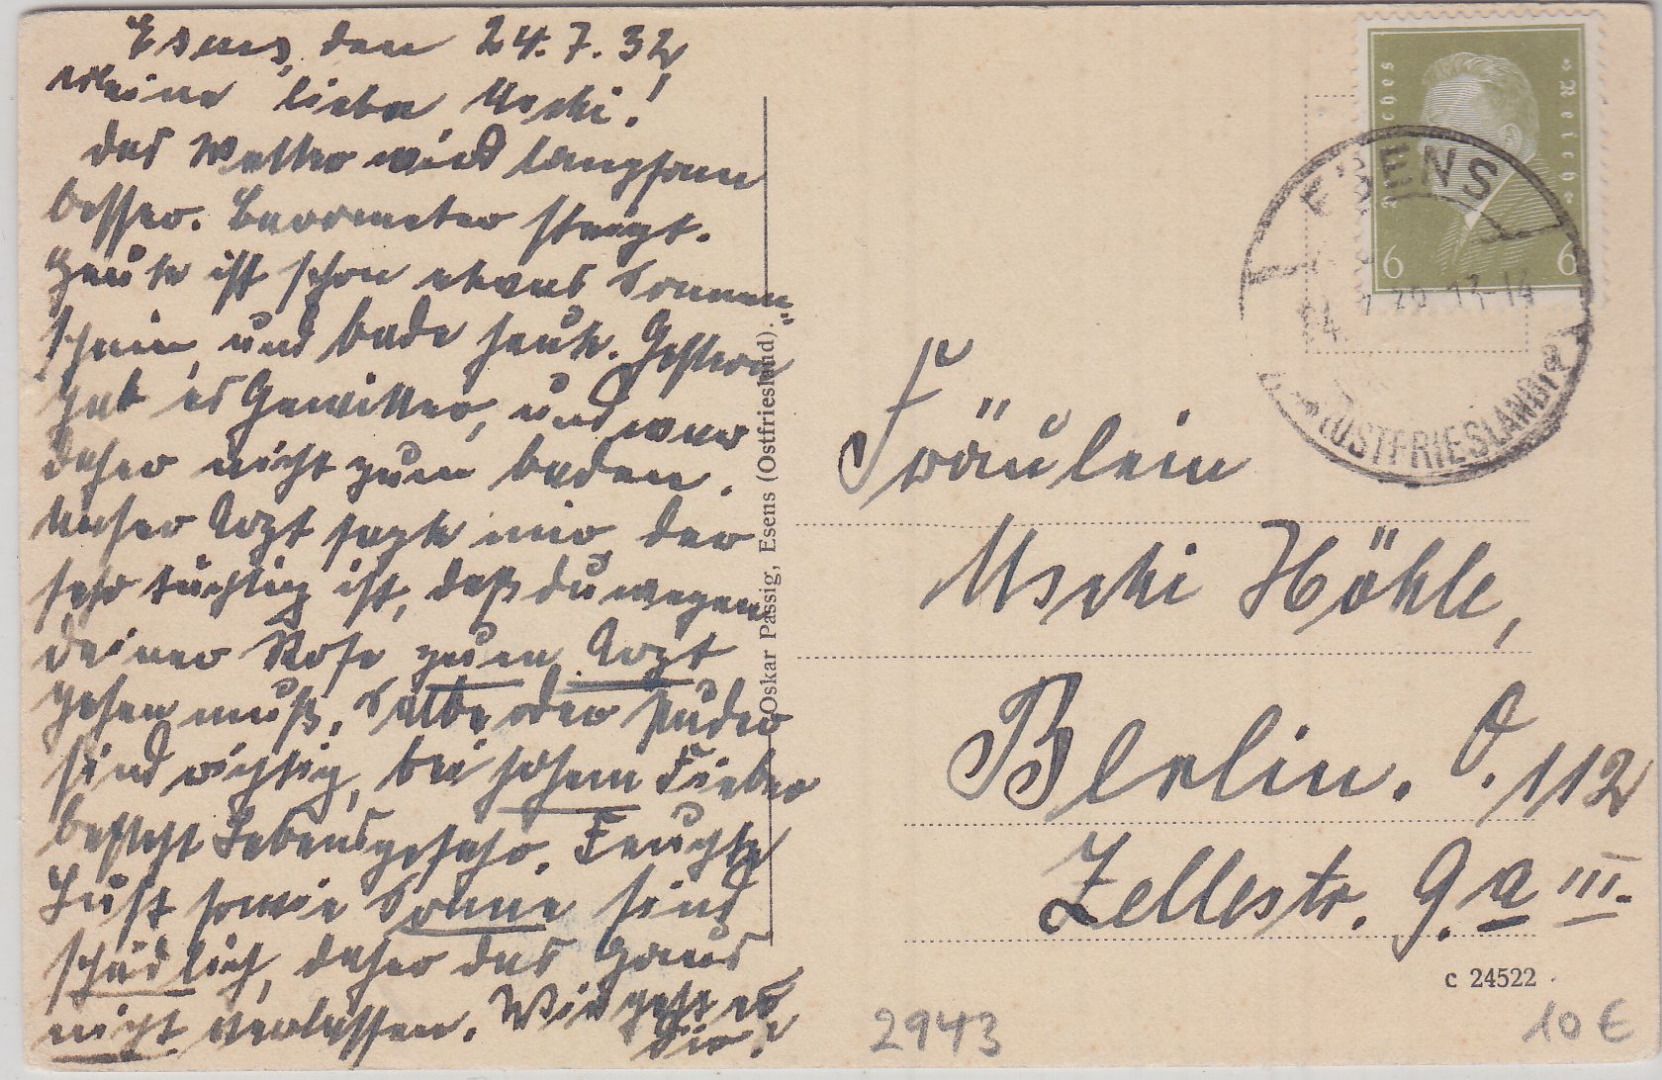 Esens, den 24.7.32
Meine liebe Uschi!
das Wetter wird langsam
besser. Barometer steigt.
Heute ist schon etwas Sonnen-
schein, und bade heute. Gestern
gab es Gewitter, und war
daher nicht zum baden.
Unser Arzt sagte mir, der
sehr tüchtig ist, daß du wegen
deiner Rose zum Arzt
gehen mußt. Salbe oder Puder
sind wichtig, bei hohem Fieber
besteht Lebensgefahr. Feuchte
Luft sowie Sonne sind
schädlich, daher das Haus
nicht verlassen. Wie geht es
Dir?
Oskar Passig, Esens (Ostfriesland).
Deutsches Reich
6 6
ESENS
24. 7. 32 13-14
(OSTFRIESLAND)
Fräulein
Uschi Höhle,
Berlin. O. 112
Zellestr. 9. a III.
c 24522
2943
10 €